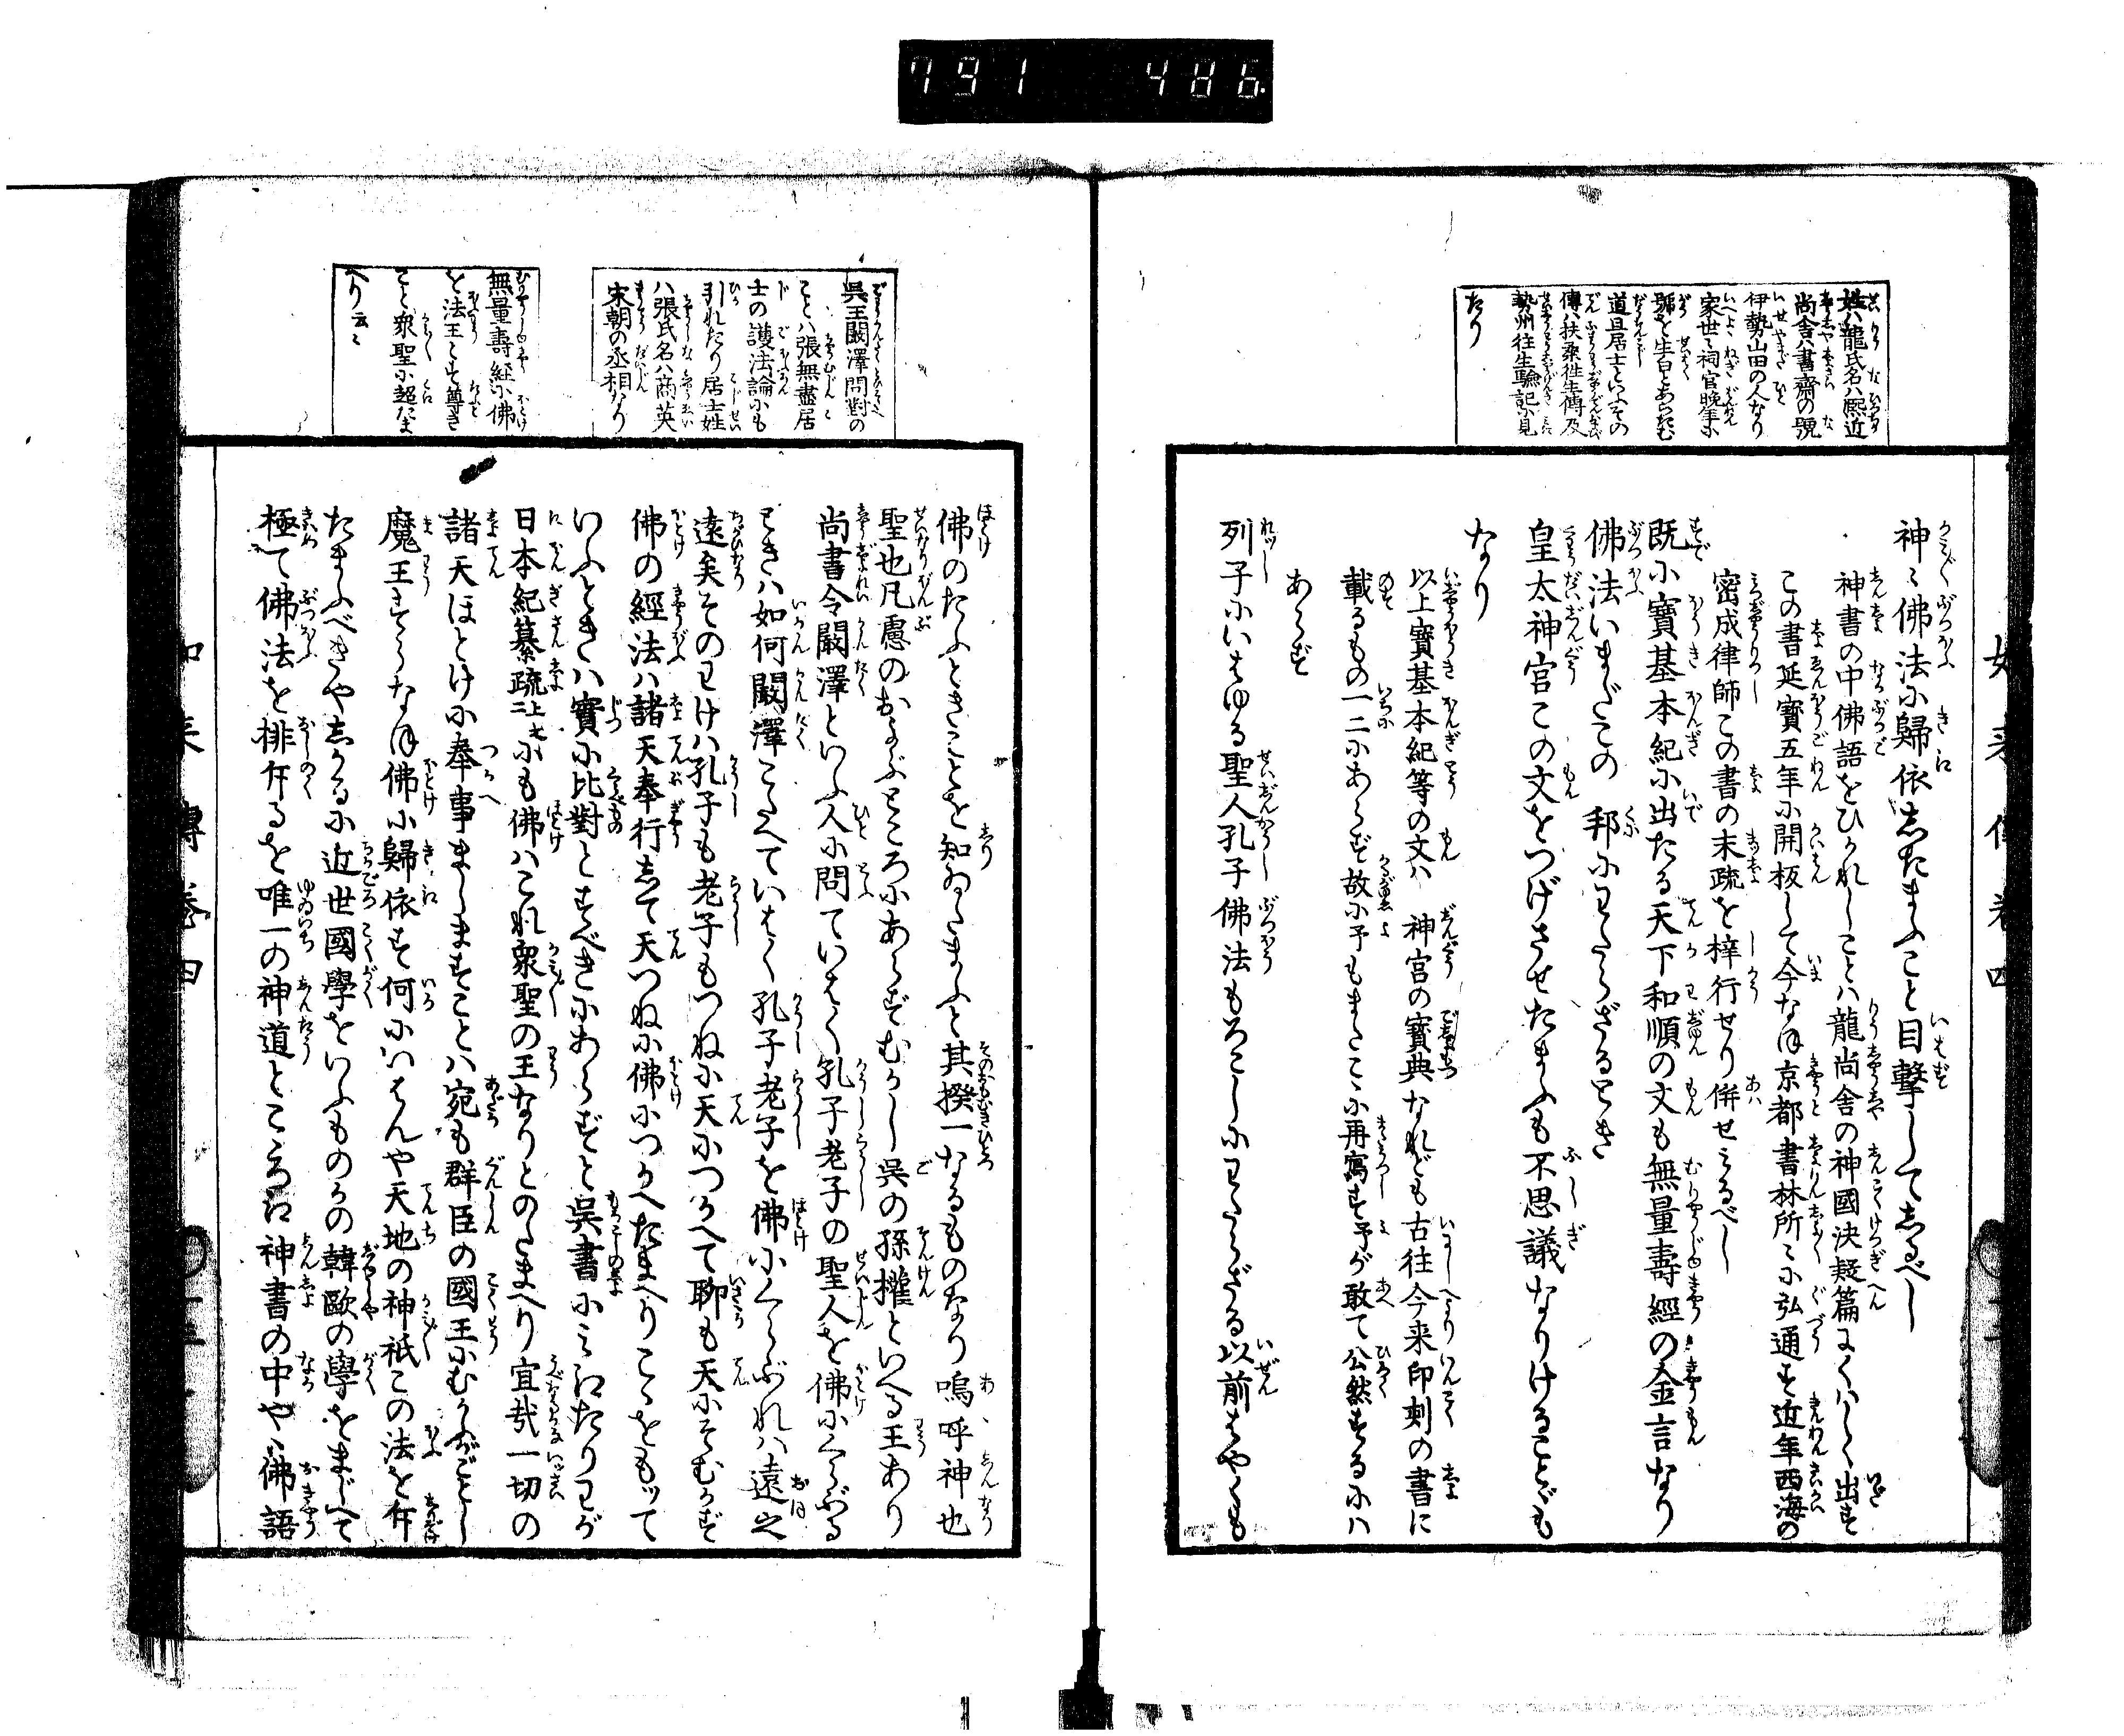 791 486
姓ハ龍氏名ハ熙近
尚舎ハ書齋の號
伊勢山田の人なり
家世〻祠官晩年小
號を生白とあらたむ
道具居士といふその
傳ハ扶桑往生傳及
勢州往生驗記小見
たり
神〻佛法小歸依志たまふこと目撃して志るべし
神書の中佛語をひかれしことハ龍尚舎の神國決疑篇にくハしく出せ
この書延寶五年小開板して今なほ京都書林所〻小弘通す近年西海の
密成律師この書の末疏を梓行せり併せみるべし
既小寶基本紀小出たる天下和順の文も無量壽經の金言なり
佛法いまだこの 邦小わたらざるとき
皇太神宮この文をつげさせたまふも不思議なりけることども
なり
以上寶基本紀等の文ハ 神宮の寶典なれども古往今来印刻の書に
載るもの一二小あらず故小予もまたこゝ小再寫す予が敢て公然するにハ
あらず
列子小いはゆる聖人孔子佛法もろこし小わたらざる以前はやくも
如来傳巻四
呉王闞澤問對の
ことハ張無盡居
士の護法論小も
引れたり居士姓
ハ張氏名ハ商英
宋朝の丞相なり
無量壽經小佛
を法王とす尊き
こと衆聖小超たま
へり云〻
佛のたふときことを知ゐたまふと其揆一なるものなり嗚呼神也
聖也凡慮のおよぶところにあらずむかし呉の孫權といへる王あり
尚書令闞澤といふ人小問ていはく孔子老子の聖人を佛小くらぶる
ときハ如何闞澤こたへていはく孔子老子を佛小くらぶれハ遠之
遠矣そのわけハ孔子も老子もつねに天小つかへて聊も天小そむかず
佛の經法ハ諸天奉行志て天つねに佛小つかへたまへりこゝをもッて
いふときハ實小比對とすべきにあらずと呉書小みえたりわが
日本紀纂疏二上七小も佛ハこれ衆聖の王なりとのたまへり宜哉一切の
諸天ほとけ小奉事ましますことハ宛も群臣の國王小むかふがごとし
魔王すらなほ佛小歸依す何小いはんや天地の神祇この法を弁
たまふべきや志かる小近世國學をいふものかの韓歐の學をまじへて
極て佛法を排弁るを唯一の神道とこゝろえ神書の中や〻佛語
如来傳巻四